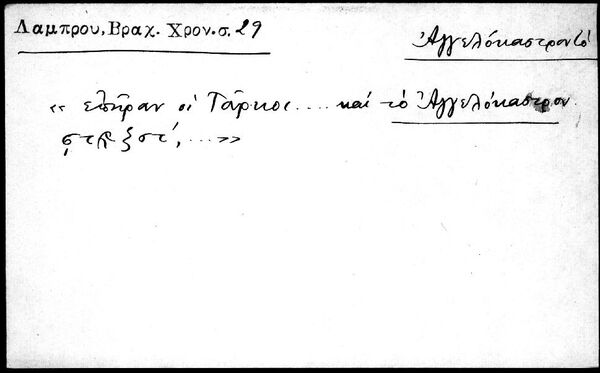 Λαμπρου, Βραχ. Χρον. σ. 29
Ἀγγελόκαστρον τὸ
« επῆραν οἱ Τοῦρκοι .... καί τὸ Ἀγγελόκαστρον
... »